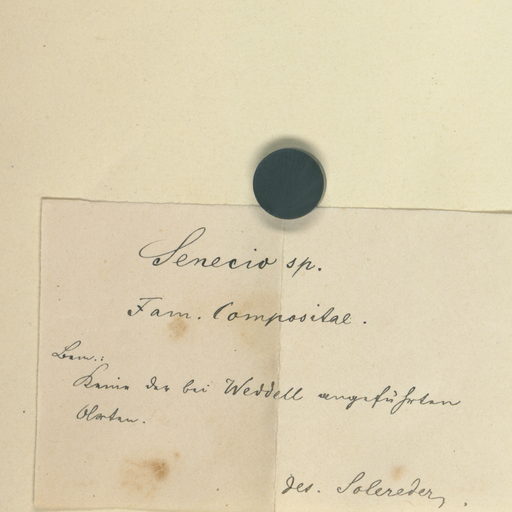 Senecio sp.
Fam. Compositae.
Bem.:
Keine der bei Weddell angeführten
Arten.
des. Solereder.